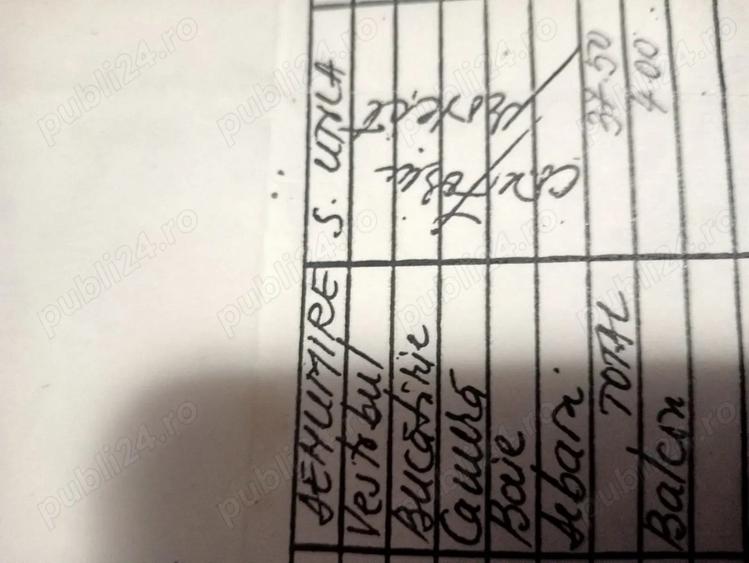 DENUMIRE S. UTILA
Vestibul
Bucătărie
Camera
Baie
Debara
TOTAL 37.50
Balcon 4.00
Conform
proiect
publi24.ro